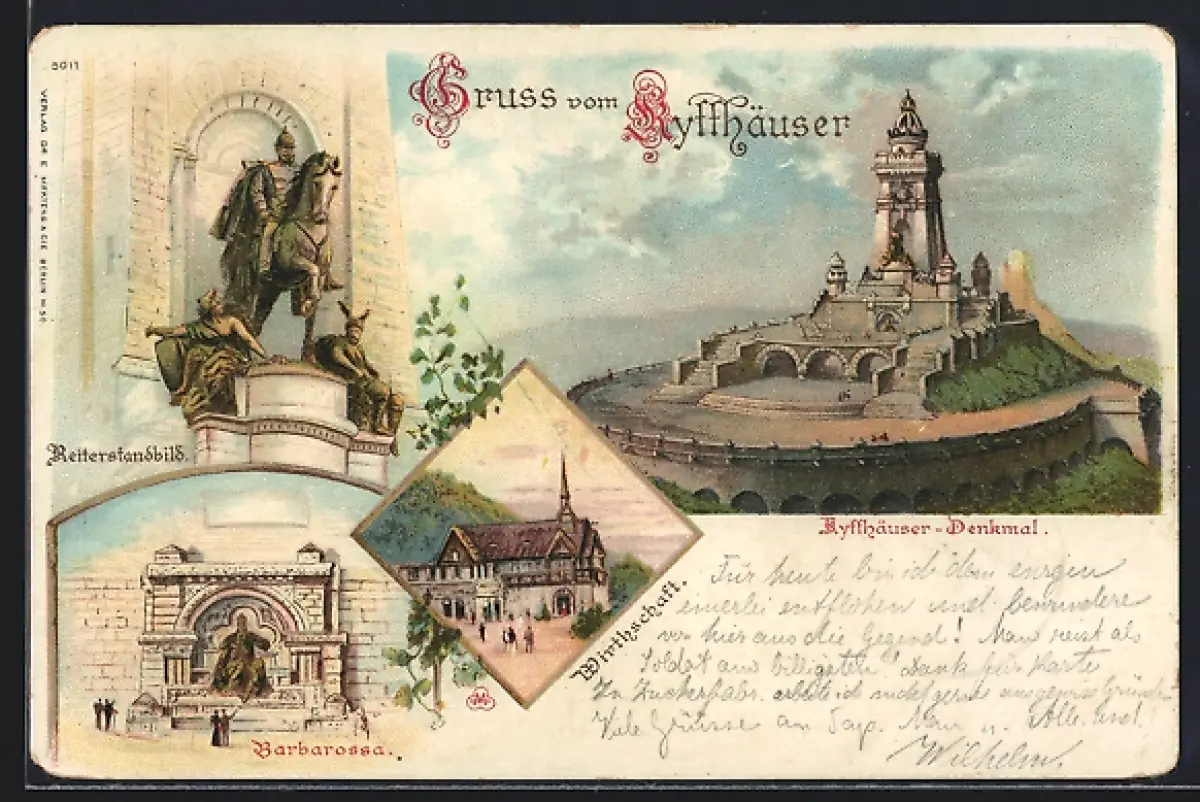 5911
VERLAG GR. E. MERTENS & CIE. BERLIN
Gruss vom Kyffhäuser
Reiterstandbild.
Kyffhäuser-Denkmal.
Wirthschaft.
Barbarossa.
Für heute bin ich dem ewigen
einerlei entflohen und bewundere
von hier aus die Gegend! Man reist als
Soldat am billigsten! Dank für Karte
In Zuckerfabr. arbeite ich nicht gerne aus Gründen
Viele Grüsse an Pap. Mam u. Alle. Und.
Wilhelm.